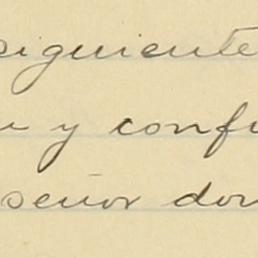 siguiente
y conf
señor don